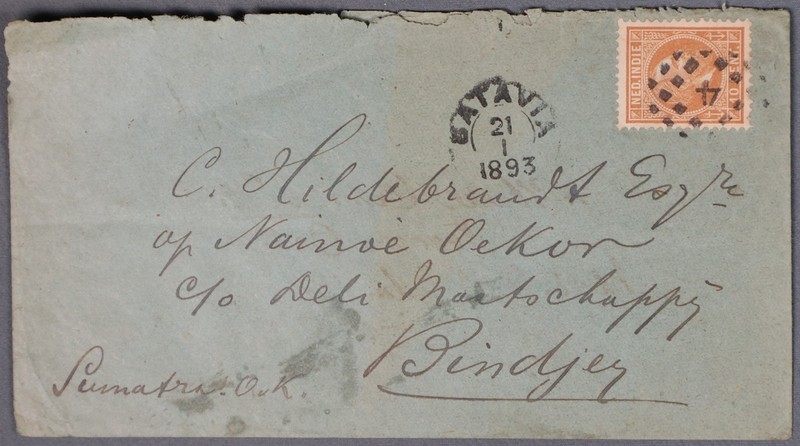 NED.INDIE
10 CENT
BATAVIA
21
1
1893
C. Hildebrandt Esqre
op Namoe Oekor
c/o Deli Maatschappij
Bindjey
Sumatra. O.K.